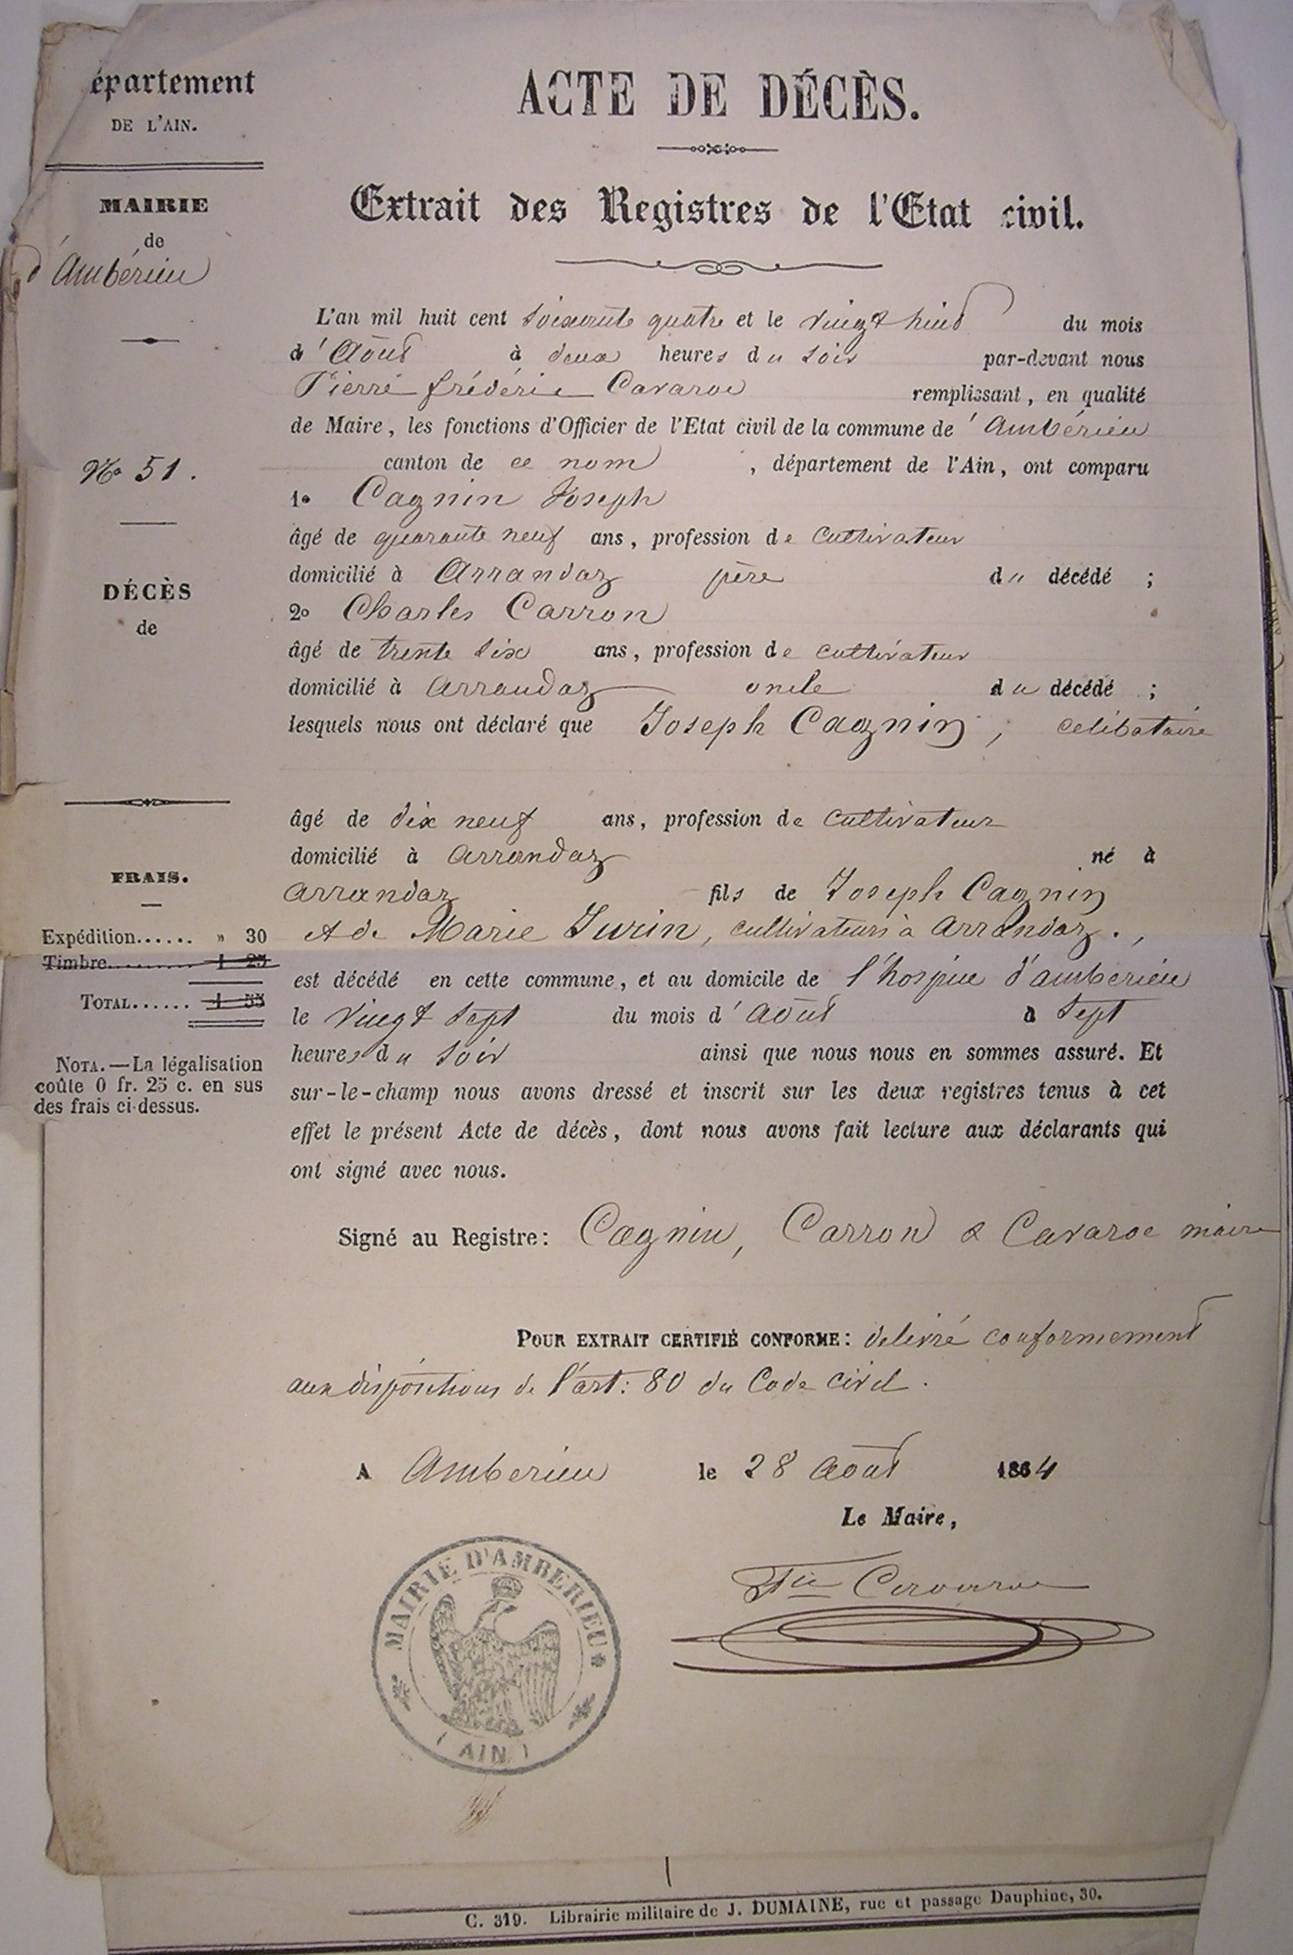 épartement
DE L'AIN.
MAIRIE
de
d'Ambérieu
No 51.
DÉCÈS
de
FRAIS.
Expédition...... » 30
Timbre.......... 1 25
TOTAL...... 1 55
NOTA. — La légalisation
coûte 0 fr. 25 c. en sus
des frais ci-dessus.
ACTE DE DÉCÈS.
Extrait des Registres de l'Etat civil.
L'an mil huit cent soixante quatre et le vingt huit du mois
d'Août à deux heures du soir par-devant nous
Pierre frédéric Cavaroc remplissant, en qualité
de Maire, les fonctions d'Officier de l'Etat civil de la commune de 'Ambérieu
canton de ce nom, département de l'Ain, ont comparu
1o Cagnin Joseph
âgé de quarante neuf ans, profession de cultivateur
domicilié à Arrandaz père du décédé ;
2o Charles Carron
âgé de trente six ans, profession de cultivateur
domicilié à Arrandaz oncle du décédé ;
lesquels nous ont déclaré que Joseph Cagnin, célibataire
âgé de dix neuf ans, profession de cultivateur
domicilié à Arrandaz né à
Arrandaz fils de Joseph Cagnin
et de Marie Jurin, cultivateurs à Arrandaz.,
est décédé en cette commune, et au domicile de l'hospice d'amberieu
le vingt sept du mois d'Août à sept
heures du soir ainsi que nous nous en sommes assuré. Et
sur-le-champ nous avons dressé et inscrit sur les deux registres tenus à cet
effet le présent Acte de décès, dont nous avons fait lecture aux déclarants qui
ont signé avec nous.
Signé au Registre: Cagnin, Carron & Cavaroc maire
POUR EXTRAIT CERTIFIÉ CONFORME: délivré conformement
aux dispositions de l'art: 80 du Code civil.
A Amberieu le 28 Août 1864
Le Maire,
Fic Cavaroc
MAIRIE D'AMBERIEU
(AIN)
C. 319. Librairie militaire de J. DUMAINE, rue et passage Dauphine, 30.